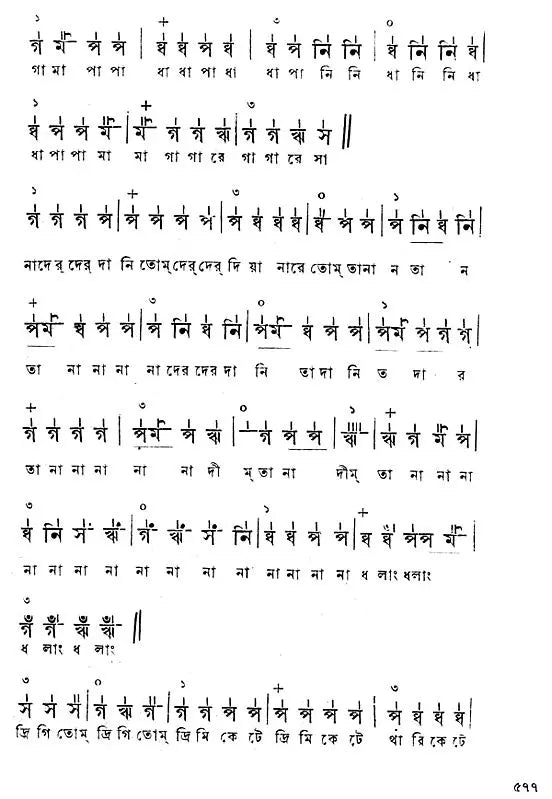 ১ + ৩ ০
গ ম প প | ধ ধ প ধ | ধ প নি নি | ধ নি নি ধ |
গা মা পা পা ধা ধা পা ধা ধা পা নি নি ধা নি নি ধা
১ + ৩
ধ প প ম | ম গ গ ঋ | গ গ ঋ স ||
ধা পা পা মা মা গা গা রে গা গা রে সা
১ + ৩ ০ ১
গ গ গ প | প প প প | প ধ ধ ধ | ধ প প | প নি ধ নি |
নাদের্ দের্ দা নি তোম্ দের্ দের্ দি য়া নারে তোম্ তানা ন তা ন
+ ৩ ০ ১
পম ধ প প | প নি ধ নি | পম ধ প প | পম প গ গ |
তা না না না না দের দের দা নি তা দা নি ত দা র
+ ৩ ০ ১ +
গ গ গ গ | পম প ঋ | গ প প | ঋ | ঋ গ ম প |
তা না না না না না দী ম্ তা না দীম্ তা না না না
৩ ০ ১ +
ধ নি স ঋ | গ ঋ স নি | ধ ধ প প | ধ ধ পপ ম |
না না না না না না না না না না না না ধ লাং ধলাং
৩
গঁ গঁ ঋঁ ঋঁ ||
ধ লাং ধ লাং
৩ ০ ১ + ৩
স স স | গ ঋ গ | গ গ প প | প প প প | প ধ ধ ধ |
দ্রি গি তোম্ দ্রি গি তোম্ দ্রি মি কে টে দ্রি মি কে টে থা রি কে টে
৫৭৭